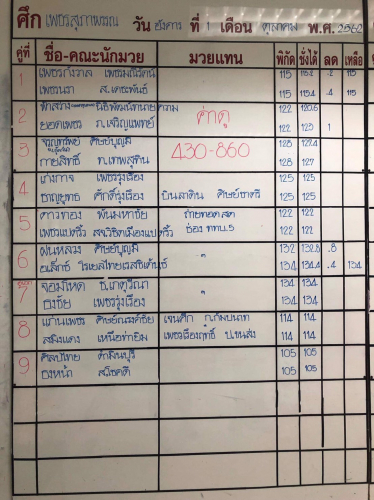 ศึก เพชรสุภาพรรณ วัน อังคาร ที่ 1 เดือน ตุลาคม พ.ศ. 2562
คู่ที่ ชื่อ-คณะนักมวย มวยแทน พิกัด ชั่งได้ ลด เหลือ
1 เพชรกังวาล เพชรมณีรัตน์ 115 115.2 .2 115
เพชรนภา ส.เดชะพันธ์ 115 115.4 .4 115
2 ความ 122 120.6
ยอดเพชร ภ.เจริญแพทย์ 122 123 1
ค่าดู
3 ศิษย์บุญมี 128 127.4
กายสิทธิ์ ท.เทพสุทิน 128 127
430-860
4 เก่งกาจ เพชรรุ่งเรือง 125 125
ธาญยุทธ ศักดิ์รุ่งเรือง บินลาดิน ศิษย์ชาตรี 125 125
5 ดาวทอง พันมหาชัย ถ่ายทอดสด 122 122
เพชรแปดริ้ว ช่อง ททบ.5 122 122
6 ฝนหลวง ศิษย์บุญมี 132 132.8 .8
" 134 134.4 .4 134
7 จอมโหด 134 134
ธงชัย เพชรรุ่งเรือง " 134 134
8 แก่นเพชร ศิษย์ณรงค์ชัย เจนศึก 114 114
สมิงแดง เหนือท่ายิม เพชรเรืองฤทธิ์ ป.ขนส่ง 114 114
9 ศิลป์ไทย ด่านมีนบุรี 105 105
ธงหน้า ส.โชคดี 105 105